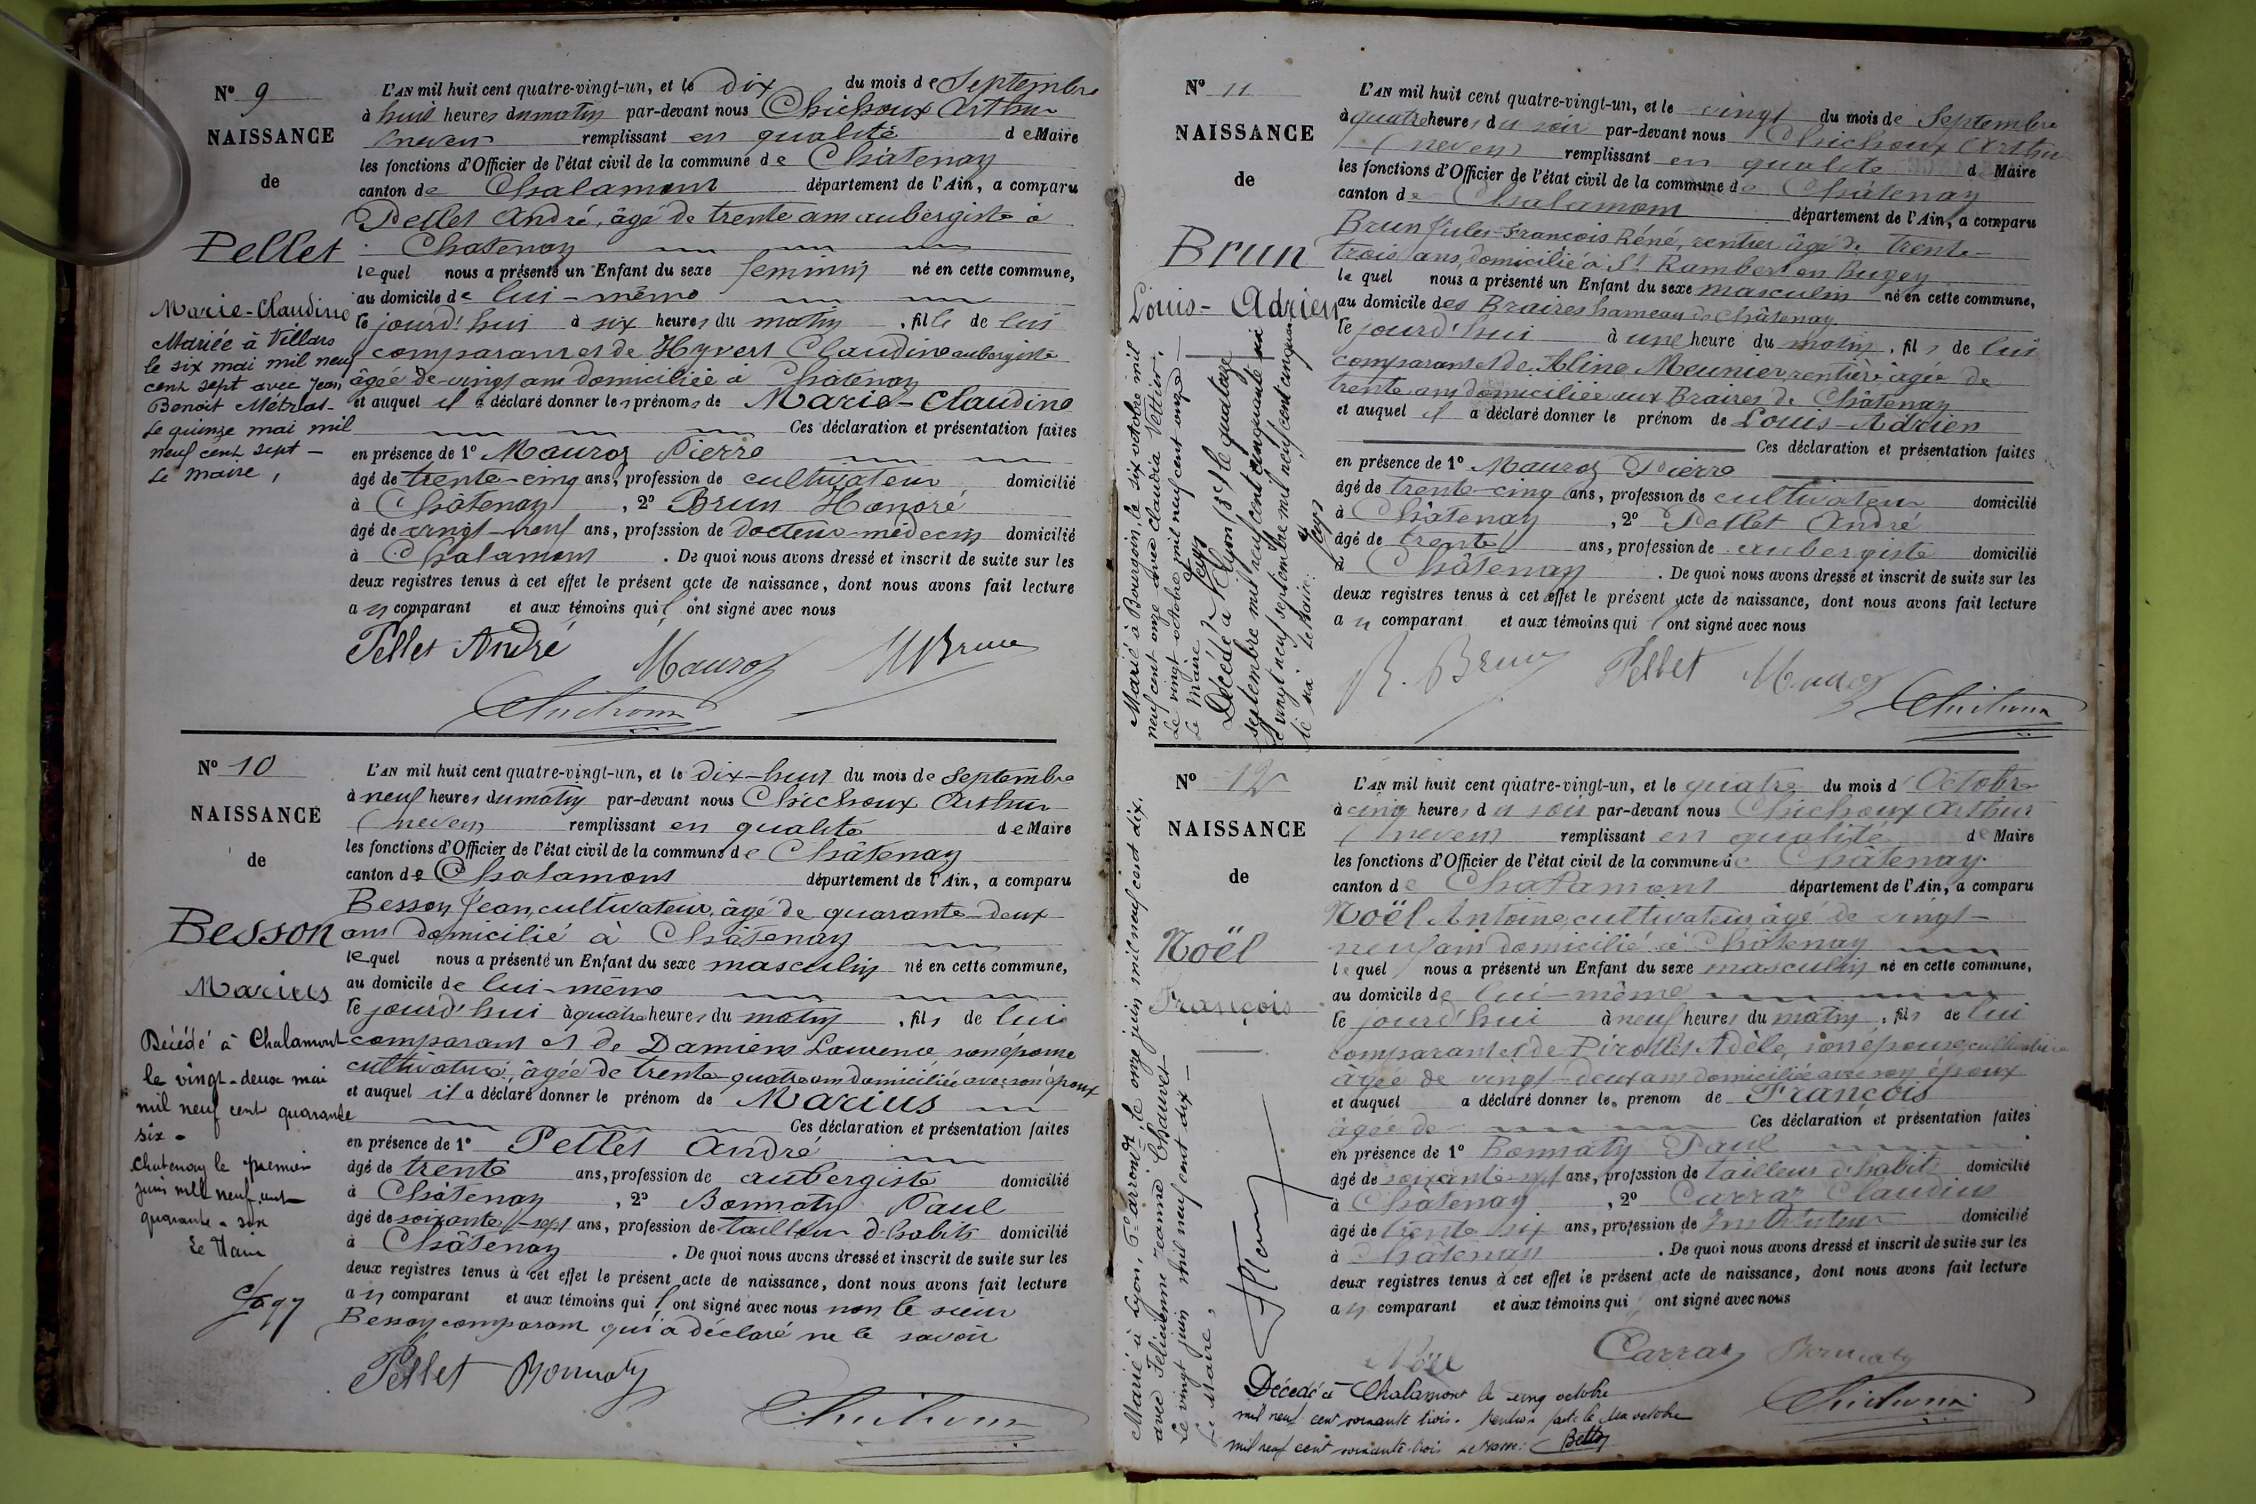 N° 9
NAISSANCE
de
Pellet
Marie-Claudine
Mariée à Villars
le six mai mil neuf
cent sept avec Jean
Benoit Métral-
Le quinze mai mil
neuf cent sept -
Le Maire,
L'AN mil huit cent quatre-vingt-un, et le dix du mois de Septembre
à huit heures du matin par-devant nous Chichoux Arthur
(neven) remplissant en qualité de Maire
les fonctions d'Officier de l'état civil de la commune de Châtenay
canton de Chalamont département de l'Ain, a comparu
Pellet André, âgé de trente ans aubergiste à
Chatenay
lequel nous a présenté un Enfant du sexe feminin né en cette commune,
au domicile de lui-même
le jourd'hui à six heures du matin, fille de lui
comparant et de Hyvert Claudine aubergiste
âgée de vingt ans domiciliée à Châtenay
et auquel il a déclaré donner les prénoms de Marie-Claudine
Ces déclaration et présentation faites
en présence de 1° Mauroz Pierre
âgé de trente-cinq ans, profession de cultivateur domicilié
à Châtenay, 2° Brun Honoré
âgé de vingt-neuf ans, profession de docteur-médecin domicilié
à Chalamont. De quoi nous avons dressé et inscrit de suite sur les
deux registres tenus à cet effet le présent acte de naissance, dont nous avons fait lecture
au comparant et aux témoins qui ont signé avec nous
Pellet André Mauroz H Brun
Chichoux
N° 10
NAISSANCE
de
Besson
Marius
Décédé à Chalamont
le vingt-deux mai
mil neuf cent quarante
six.
Chatenay le premier
juin mil neuf cent
quarante-six
Le Maire
L'AN mil huit cent quatre-vingt-un, et le dix-huit du mois de Septembre
à neuf heures du matin par-devant nous Chichoux Arthur
(neven) remplissant en qualité de Maire
les fonctions d'Officier de l'état civil de la commune de Châtenay
canton de Chalamont département de l'Ain, a comparu
Besson Jean, cultivateur, âgé de quarante-deux
ans domicilié à Châtenay
lequel nous a présenté un Enfant du sexe masculin né en cette commune,
au domicile de lui-même
le jourd'hui à quatre heures du matin, fils de lui
comparant et de Damiens Laurence son épouse
cultivatrice, âgée de trente-quatre ans domiciliée avec son époux
et auquel il a déclaré donner le prénom de Marius
Ces déclaration et présentation faites
en présence de 1° Pellet André
âgé de trente ans, profession de aubergiste domicilié
à Châtenay, 2° Bonnaty Paul
âgé de soixante-sept ans, profession de tailleur d'habits domicilié
à Châtenay. De quoi nous avons dressé et inscrit de suite sur les
deux registres tenus à cet effet le présent acte de naissance, dont nous avons fait lecture
au comparant et aux témoins qui ont signé avec nous non le sieur
Besson comparant qui a déclaré ne le savoir
Pellet Bonnaty
Chichoux
N° 11
NAISSANCE
de
Brun
Louis-Adrien
Marié à Bourgoin, le six octobre mil
neuf cent onze avec Claudia Vettier.
Le vingt octobre mil neuf cent onze -
Le Maire,
Décédé à Lyon (3e) le quatorze
septembre mil neuf cent cinquante six
Le vingt neuf septembre mil neuf cent cinquante
six Le Maire:
L'AN mil huit cent quatre-vingt-un, et le vingt du mois de Septembre
à quatre heures du soir par-devant nous Chichoux Arthur
(neven) remplissant en qualité de Maire
les fonctions d'Officier de l'état civil de la commune de Châtenay
canton de Chalamont département de l'Ain, a comparu
Brun Jules-François Réné, rentier âgé de trente-
trois ans, domicilié à St Rambert en Bugey
lequel nous a présenté un Enfant du sexe masculin né en cette commune,
au domicile des Braires hameau de Châtenay
le jourd'hui à une heure du matin, fils de lui
comparant et de Aline Meunier, rentière âgée de
trente ans domiciliée aux Braires de Châtenay
et auquel il a déclaré donner le prénom de Louis-Adrien
Ces déclaration et présentation faites
en présence de 1° Mauroz Pierre
âgé de trente-cinq ans, profession de cultivateur domicilié
à Châtenay, 2° Pellet André
âgé de trente ans, profession de aubergiste domicilié
à Châtenay. De quoi nous avons dressé et inscrit de suite sur les
deux registres tenus à cet effet le présent acte de naissance, dont nous avons fait lecture
au comparant et aux témoins qui ont signé avec nous
R. Brun Pellet Mauroz
Chichoux
N° 12
NAISSANCE
de
Noël
François
Marié à Lyon, 6e arrondt, le onze juin mil neuf cent dix,
avec Félicienne Jeanne Chauvet
Le vingt juin mil neuf cent dix -
Le Maire,
L'AN mil huit cent quatre-vingt-un, et le quatre du mois d'Octobre
à cinq heures du soir par-devant nous Chichoux Arthur
(neven) remplissant en qualité de Maire
les fonctions d'Officier de l'état civil de la commune de Châtenay
canton de Chalamont département de l'Ain, a comparu
Noël Antoine, cultivateur âgé de vingt-
neuf ans domicilié à Châtenay
lequel nous a présenté un Enfant du sexe masculin né en cette commune,
au domicile de lui-même
le jourd'hui à neuf heures du matin, fils de lui
comparant et de Pirollet Adèle, son épouse, cultivatrice
âgée de vingt-deux ans domiciliée avec son époux
et auquel a déclaré donner le prenom de François
âgée de Ces déclaration et présentation faites
en présence de 1° Bonnaty Paul
âgé de soixante-sept ans, profession de tailleur d'habits domicilié
à Châtenay, 2° Carraz Claudius
âgé de trente six ans, profession de Instituteur domicilié
à Châtenay. De quoi nous avons dressé et inscrit de suite sur les
deux registres tenus à cet effet le présent acte de naissance, dont nous avons fait lecture
au comparant et aux témoins qui ont signé avec nous
Noël Carraz Bonnaty
Chichoux
Décédé à Chalamont le cinq octobre
mil neuf cent soixante trois. Mention faite le dix octobre
mil neuf cent soixante-trois Le Maire: